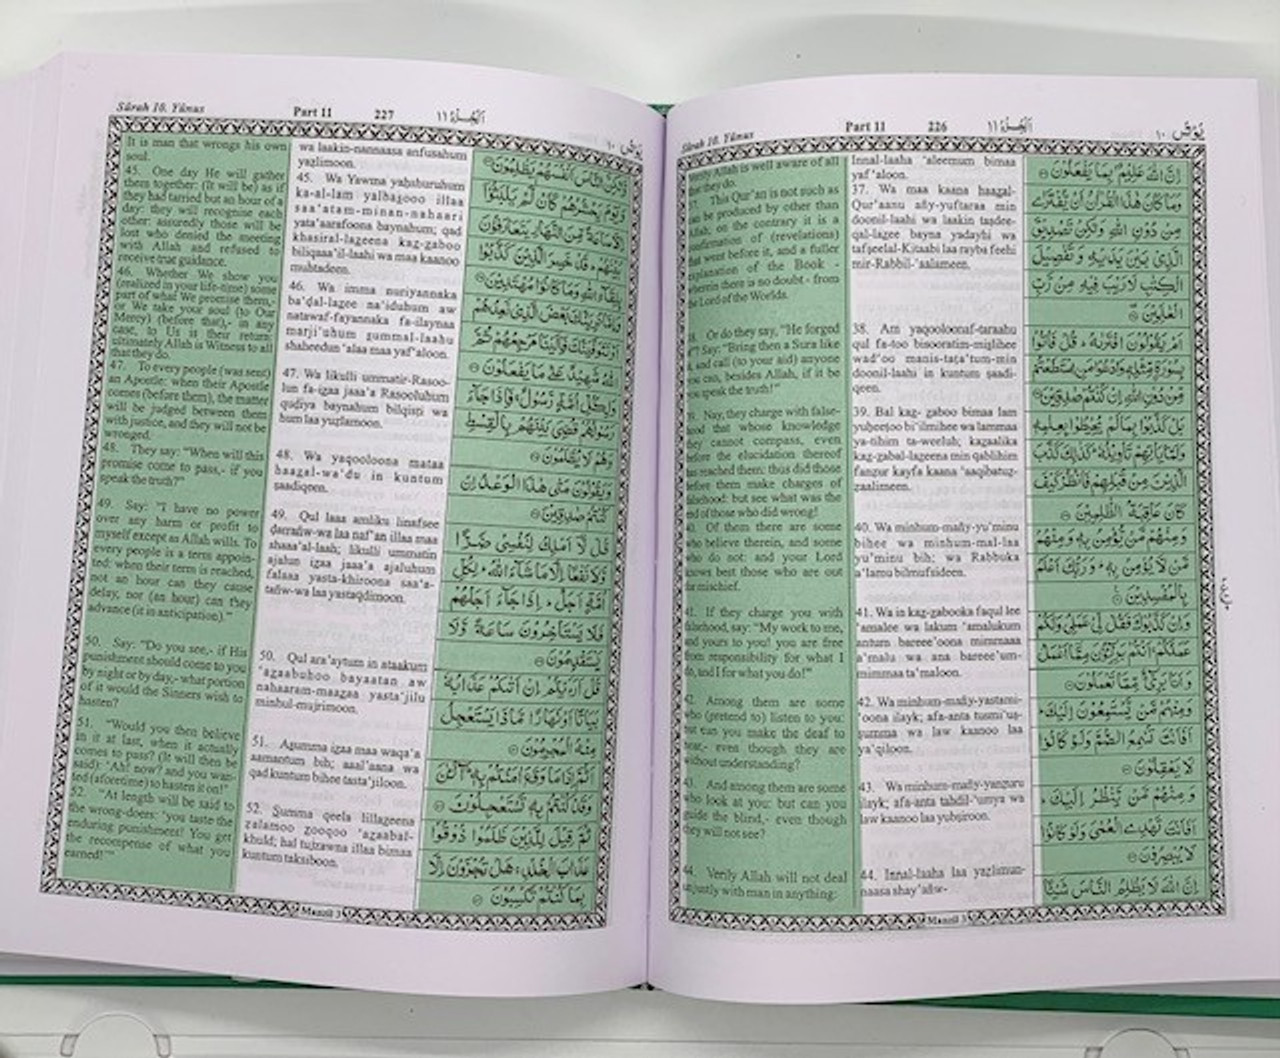 Sûrah 10. Yûnus
Part 11
226
اَلْجُزْءُ ١١
يُونُس ١٠
Verily Allah is well aware of all
that they do.
This Qur'an is not such as
can be produced by other than
Allah; on the contrary it is a
confirmation of (revelations)
that went before it, and a fuller
explanation of the Book -
wherein there is no doubt - from
the Lord of the Worlds.
Or do they say, "He forged
it"? Say: "Bring then a Sura like
it, and call (to your aid) anyone
you can, besides Allah, if it be
you speak the truth!"
Nay, they charge with false-
hood that whose knowledge
they cannot compass, even
before the elucidation thereof
has reached them: thus did those
before them make charges of
falsehood: but see what was the
end of those who did wrong!
Of them there are some
who believe therein, and some
who do not: and your Lord
knows best those who are out
for mischief.
41. If they charge you with
falsehood, say: "My work to me,
and yours to you! you are free
from responsibility for what I
do, and I for what you do!"
42. Among them are some
who (pretend to) listen to you:
but can you make the deaf to
hear,- even though they are
without understanding?
43. And among them are some
who look at you: but can you
guide the blind,- even though
they will not see?
44. Verily Allah will not deal
unjustly with man in anything:
Innal-laaha 'aleemum bimaa
yaf'aloon.
37. Wa maa kaana haagal-
Qur'aanu añy-yuftaraa min
doonil-laahi wa laakin tasdee-
qal-lagee bayna yadayhi wa
tafseelal-Kitaabi laa rayba feehi
mir-Rabbil-'aalameen.
38. Am yaqooloonaf-taraahu
qul fa-too bisooratim-mislihee
wad'oo manis-tata'tum-min
doonil-laahi in kuntum saadi-
qeen.
39. Bal kag- gaboo bimaa lam
yuheetoo bi'ilmihee wa lammaa
ya-tihim ta-weeluh; kagaalika
kag-gabal-lageena min qablihim
fanzur kayfa kaana 'aaqibatuz-
zaalimeen.
40. Wa minhum-mañy-yu'minu
bihee wa minhum-mal-laa
yu'minu bih; wa Rabbuka
a'lamu bilmufsideen.
41. Wa in kag-gabooka faqul lee
'amalee wa lakum 'amalukum
antum bareee'oona mimmaaa
a'malu wa ana bareee'um-
mimmaa ta'maloon.
42. Wa minhum-mañy-yastami-
'oona ilayk; afa-anta tusmi'us-
summa wa law kaanoo laa
ya'qiloon.
43. Wa minhum-mañy-yanzuru
ilayk; afa-anta tahdil-'umya wa
law kaanoo laa yubsiroon.
44. Innal-laaha laa yazlimun-
naasa shay'añw-
اِنَّ اللّٰهَ عَلِيْمٌۢ بِمَا يَفْعَلُوْنَ
وَمَا كَانَ هٰذَا الْقُرْاٰنُ اَنْ يُّفْتَرٰى
مِنْ دُوْنِ اللّٰهِ وَلٰكِنْ تَصْدِيْقَ
الَّذِيْ بَيْنَ يَدَيْهِ وَتَفْصِيْلَ
الْكِتٰبِ لَا رَيْبَ فِيْهِ مِنْ رَّبِّ
الْعٰلَمِيْنَ
اَمْ يَقُوْلُوْنَ افْتَرٰىهُ ؕ قُلْ فَاْتُوْا
بِسُوْرَةٍ مِّثْلِهٖ وَادْعُوْا مَنِ اسْتَطَعْتُمْ
مِّنْ دُوْنِ اللّٰهِ اِنْ كُنْتُمْ صٰدِقِيْنَ
بَلْ كَذَّبُوْا بِمَا لَمْ يُحِيْطُوْا بِعِلْمِهٖ
وَلَمَّا يَاْتِهِمْ تَاْوِيْلُهٗ ؕ كَذٰلِكَ كَذَّبَ
الَّذِيْنَ مِنْ قَبْلِهِمْ فَانْظُرْ كَيْفَ
كَانَ عَاقِبَةُ الظّٰلِمِيْنَ
وَمِنْهُمْ مَّنْ يُّؤْمِنُ بِهٖ وَمِنْهُمْ
مَّنْ لَّا يُؤْمِنُ بِهٖ ؕ وَرَبُّكَ اَعْلَمُ
بِالْمُفْسِدِيْنَ
وَاِنْ كَذَّبُوْكَ فَقُلْ لِّيْ عَمَلِيْ وَلَكُمْ
عَمَلُكُمْ ۚ اَنْتُمْ بَرِيْٓــُٔوْنَ مِمَّاۤ اَعْمَلُ
وَاَنَا بَرِيْٓءٌ مِّمَّا تَعْمَلُوْنَ
وَمِنْهُمْ مَّنْ يَّسْتَمِعُوْنَ اِلَيْكَ ؕ
اَفَاَنْتَ تُسْمِعُ الصُّمَّ وَلَوْ كَانُوْا
لَا يَعْقِلُوْنَ
وَمِنْهُمْ مَّنْ يَّنْظُرُ اِلَيْكَ ؕ
اَفَاَنْتَ تَهْدِي الْعُمْيَ وَلَوْ كَانُوْا
لَا يُبْصِرُوْنَ
اِنَّ اللّٰهَ لَا يَظْلِمُ النَّاسَ شَيْـًٔا
Manzil 3
Sûrah 10. Yûnus
Part 11
227
اَلْجُزْءُ ١١
يُونُس ١٠
It is man that wrongs his own
soul.
45. One day He will gather
them together: (It will be) as if
they had tarried but an hour of a
day: they will recognise each
other: assuredly those will be
lost who denied the meeting
with Allah and refused to
receive true guidance.
46. Whether We show you
(realized in your life-time) some
part of what We promise them,-
or We take your soul (to Our
Mercy) (before that),- in any
case, to Us is their return:
ultimately Allah is Witness to all
that they do.
47. To every people (was sent)
an Apostle: when their Apostle
comes (before them), the matter
will be judged between them
with justice, and they will not be
wronged.
48. They say: "When will this
promise come to pass,- if you
speak the truth?"
49. Say: "I have no power
over any harm or profit to
myself except as Allah wills. To
every people is a term appoin-
ted: when their term is reached,
not an hour can they cause
delay, nor (an hour) can they
advance (it in anticipation)."
50. Say: "Do you see,- if His
punishment should come to you
by night or by day,- what portion
of it would the Sinners wish to
hasten?
51. "Would you then believe
in it at last, when it actually
comes to pass? (It will then be
said): 'Ah! now? and you wan-
ted (aforetime) to hasten it on!'
52. "At length will be said to
the wrong-doers: 'you taste the
enduring punishment! You get
the recompense of what you
earned!'"
wa laakin-nannaasa anfusahum
yazlimoon.
45. Wa Yawma yahshuruhum
ka-al-lam yalbagooo illaa
saa'atam-minan-nahaari
yata'aarafoona baynahum; qad
khasiral-lageena kag-gaboo
biliqaaa'il-laahi wa maa kaanoo
muhtadeen.
46. Wa imma nuriyannaka
ba'dal-lagee na'iduhum aw
natawaf-fayannaka fa-ilaynaa
marji'uhum summal-laahu
shaheedun 'alaa maa yaf'aloon.
47. Wa likulli ummatir-Rasoo-
lun fa-igaa jaaa'a Rasooluhum
qudiya baynahum bilqisti wa
hum laa yuzlamoon.
48. Wa yaqooloona mataa
haagal-wa'du in kuntum
saadiqeen.
49. Qul laaa amliku linafsee
darrañw-wa laa naf'an illaa maa
shaaa'al-laah; likulli ummatin
ajalun igaa jaaa'a ajaluhum
falaa yasta-khiroona saa'a-
tañw-wa laa yastaqdimoon.
50. Qul ara'aytum in ataakum
'agaabuhoo bayaatan aw
nahaaram-maagaa yasta'jilu
minhul-mujrimoon.
51. Asumma igaa maa waqa'a
aamantum bih; aaal'aana wa
qad kuntum bihee tasta'jiloon.
52. Summa qeela lillageena
zalamoo zooqoo 'agaabal-
khuld; hal tujzawna illaa bimaa
kuntum taksiboon.
وَّلٰكِنَّ النَّاسَ اَنْفُسَهُمْ يَظْلِمُوْنَ
وَيَوْمَ يَحْشُرُهُمْ كَاَنْ لَّمْ يَلْبَثُوْۤا
اِلَّا سَاعَةً مِّنَ النَّهَارِ يَتَعَارَفُوْنَ
بَيْنَهُمْ ؕ قَدْ خَسِرَ الَّذِيْنَ كَذَّبُوْا
بِلِقَآءِ اللّٰهِ وَمَا كَانُوْا مُهْتَدِيْنَ
وَاِمَّا نُرِيَنَّكَ بَعْضَ الَّذِيْ نَعِدُهُمْ
اَوْ نَتَوَفَّيَنَّكَ فَاِلَيْنَا مَرْجِعُهُمْ ثُمَّ
اللّٰهُ شَهِيْدٌ عَلٰى مَا يَفْعَلُوْنَ
وَلِكُلِّ اُمَّةٍ رَّسُوْلٌ ۚ فَاِذَا جَآءَ
رَسُوْلُهُمْ قُضِيَ بَيْنَهُمْ بِالْقِسْطِ
وَهُمْ لَا يُظْلَمُوْنَ
وَيَقُوْلُوْنَ مَتٰى هٰذَا الْوَعْدُ اِنْ
كُنْتُمْ صٰدِقِيْنَ
قُلْ لَّاۤ اَمْلِكُ لِنَفْسِيْ ضَرًّا
وَّلَا نَفْعًا اِلَّا مَا شَآءَ اللّٰهُ ؕ لِكُلِّ
اُمَّةٍ اَجَلٌ ؕ اِذَا جَآءَ اَجَلُهُمْ
فَلَا يَسْتَاْخِرُوْنَ سَاعَةً وَّلَا
يَسْتَقْدِمُوْنَ
قُلْ اَرَءَيْتُمْ اِنْ اَتٰىكُمْ عَذَابُهٗ
بَيَاتًا اَوْ نَهَارًا مَّاذَا يَسْتَعْجِلُ
مِنْهُ الْمُجْرِمُوْنَ
اَثُمَّ اِذَا مَا وَقَعَ اٰمَنْتُمْ بِهٖ ؕ آٰلْـٰٔنَ
وَقَدْ كُنْتُمْ بِهٖ تَسْتَعْجِلُوْنَ
ثُمَّ قِيْلَ لِلَّذِيْنَ ظَلَمُوْا ذُوْقُوْا
عَذَابَ الْخُلْدِ ۚ هَلْ تُجْزَوْنَ اِلَّا
بِمَا كُنْتُمْ تَكْسِبُوْنَ
Manzil 3